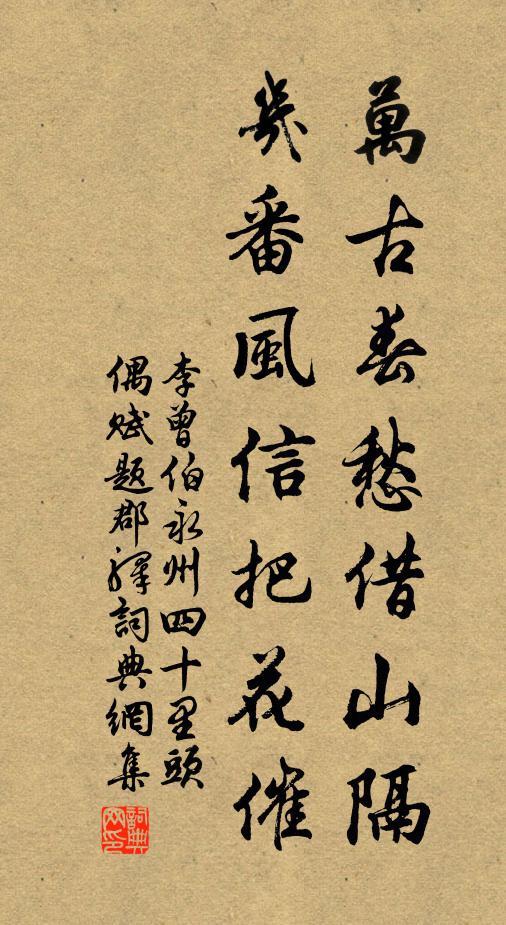 萬古春愁借山隔
幾番風信把花催
李曾伯永州四十里頭
偶賦題郡譯詞典網集
詞典网印